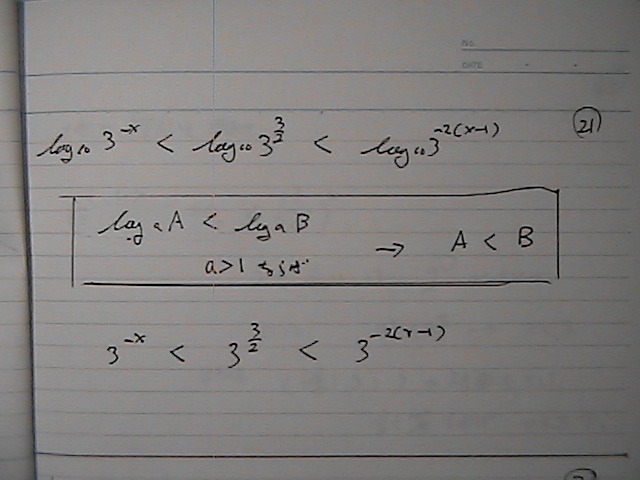 NO.
DATE
log₁₀ 3^{-x} < log₁₀ 3^{3/2} < log₁₀ 3^{-2(x-1)} ㉑
logₐ A < logₐ B → A < B
a>1 ならば
3^{-x} < 3^{3/2} < 3^{-2(x-1)}